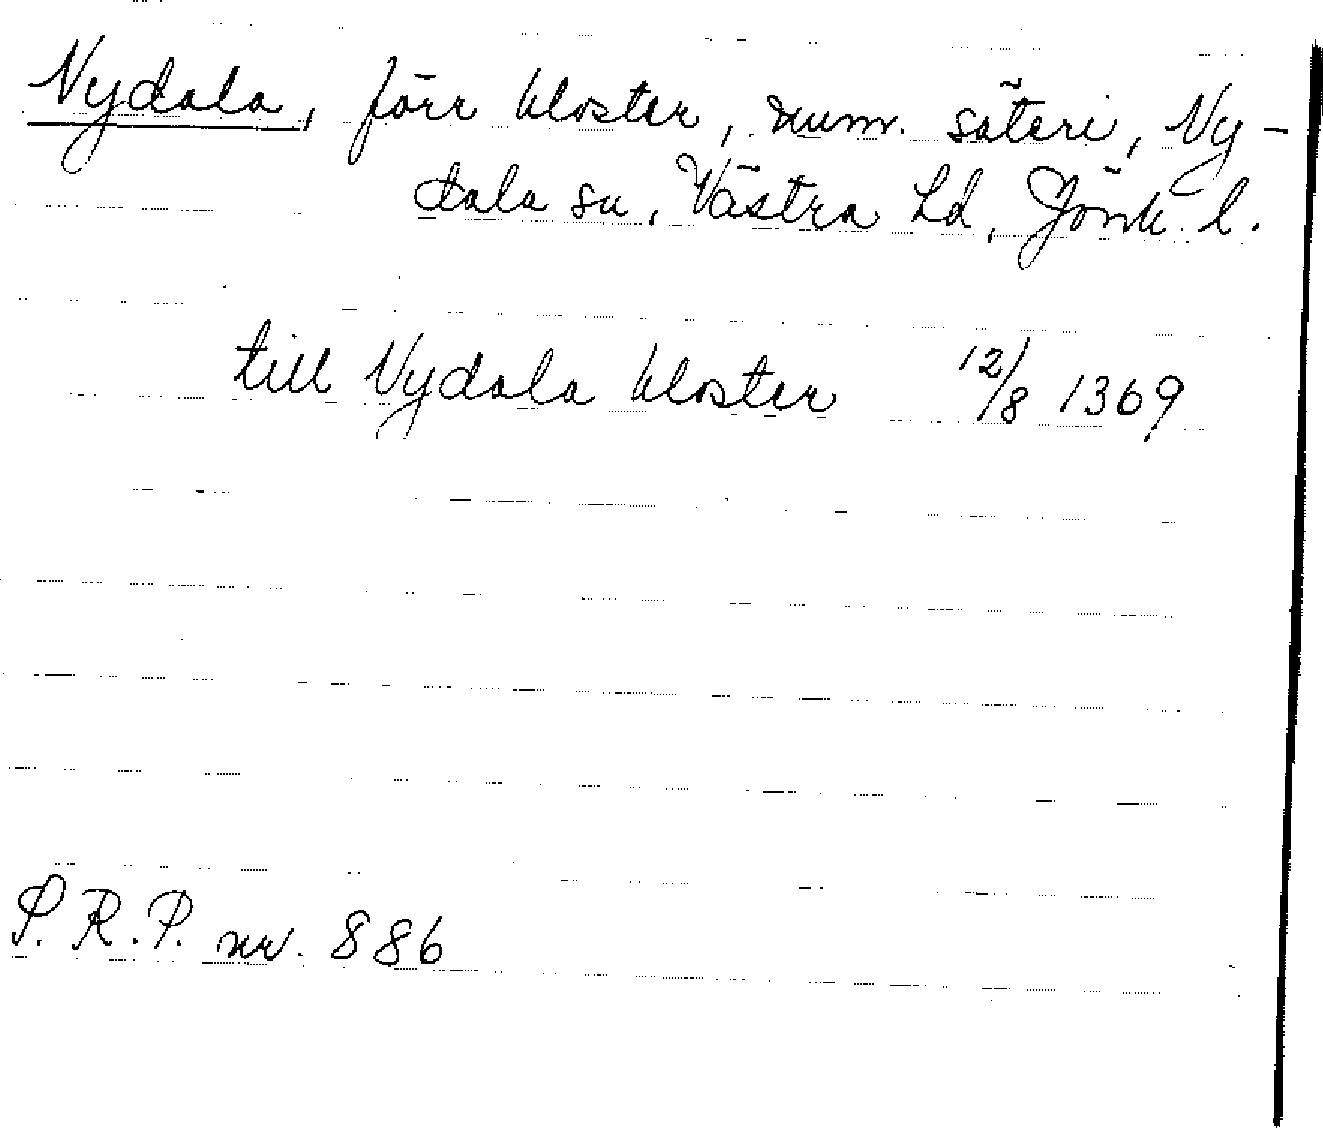 Nydala, förr kloster, num. säteri, Ny-
dala sn, Västra hd, Jönk. l.
till Nydala kloster 12/8 1369
P. R. P. nr. 886